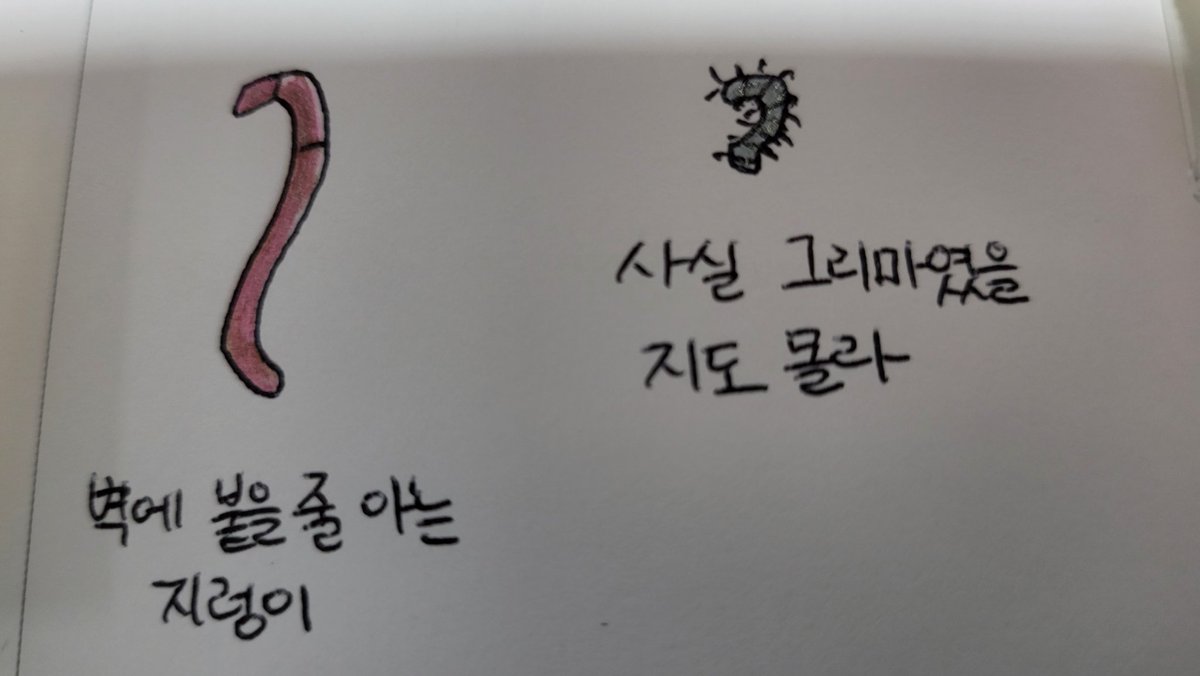 사실 그리마였을
지도 몰라
벽에 붙을 줄 아는
지렁이